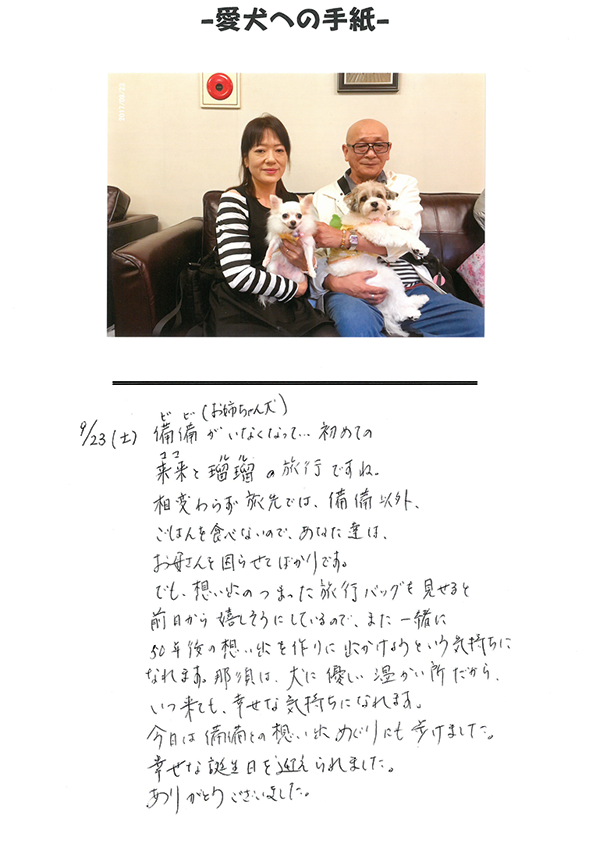 -愛犬への手紙-
2017/09/23
ビビ(お姉ちゃん犬)
9/23(土) 備備がいなくなって…初めての
ココ ルル
来来と瑠瑠の旅行ですね。
相変わらず旅先では、備備以外、
ごはんを食べないので、あなた達は、
お母さんを困らせてばかりです。
でも、想い出のつまった旅行バッグを見せると
前日から嬉しそうにしているので、また一緒に
50年後の想い出を作りに出かけようという気持ちに
なれます。那須は、犬に優しい温かい所だから、
いつ来ても、幸せな気持ちになれます。
今日は備備との想い出めぐりにも歩けました。
幸せな誕生日を迎えられました。
ありがとうございました。